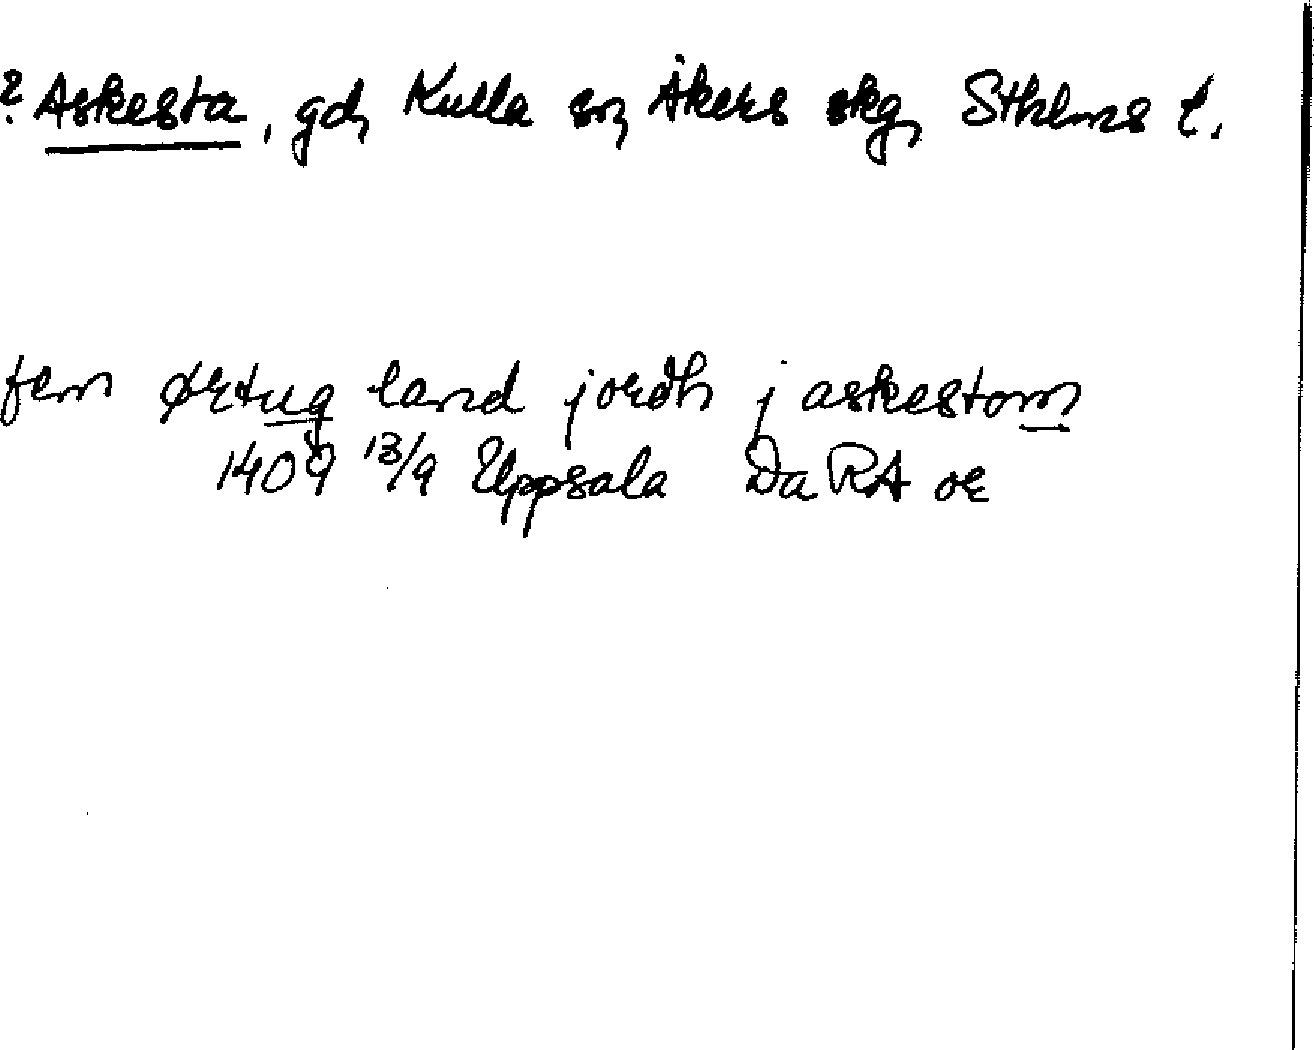 ? Askesta, gd, Kulla sn, Åkers skg, Sthlms l.
fem ørtug land jordh j askestom
1409 13/9 Uppsala Da RA or